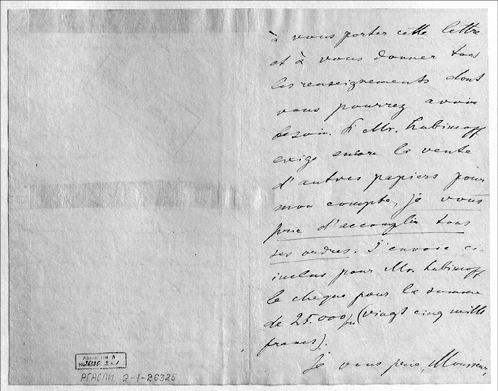 à vous porter cette lettre
et à vous donner tous
les renseignements dont
vous pourrez avoir
besoin. Si Mr. Lubimoff
exige encore la vente
d'autres papiers pour
mon compte, je vous
prie d'accomplir tous
ses ordres. J'envoie ci
inclus pour Mr. Lubimoff
le chèque pour la somme
de 25.000 frs (vingt cinq mille
francs).
Je vous prie, Monsieur,
2-1-26325